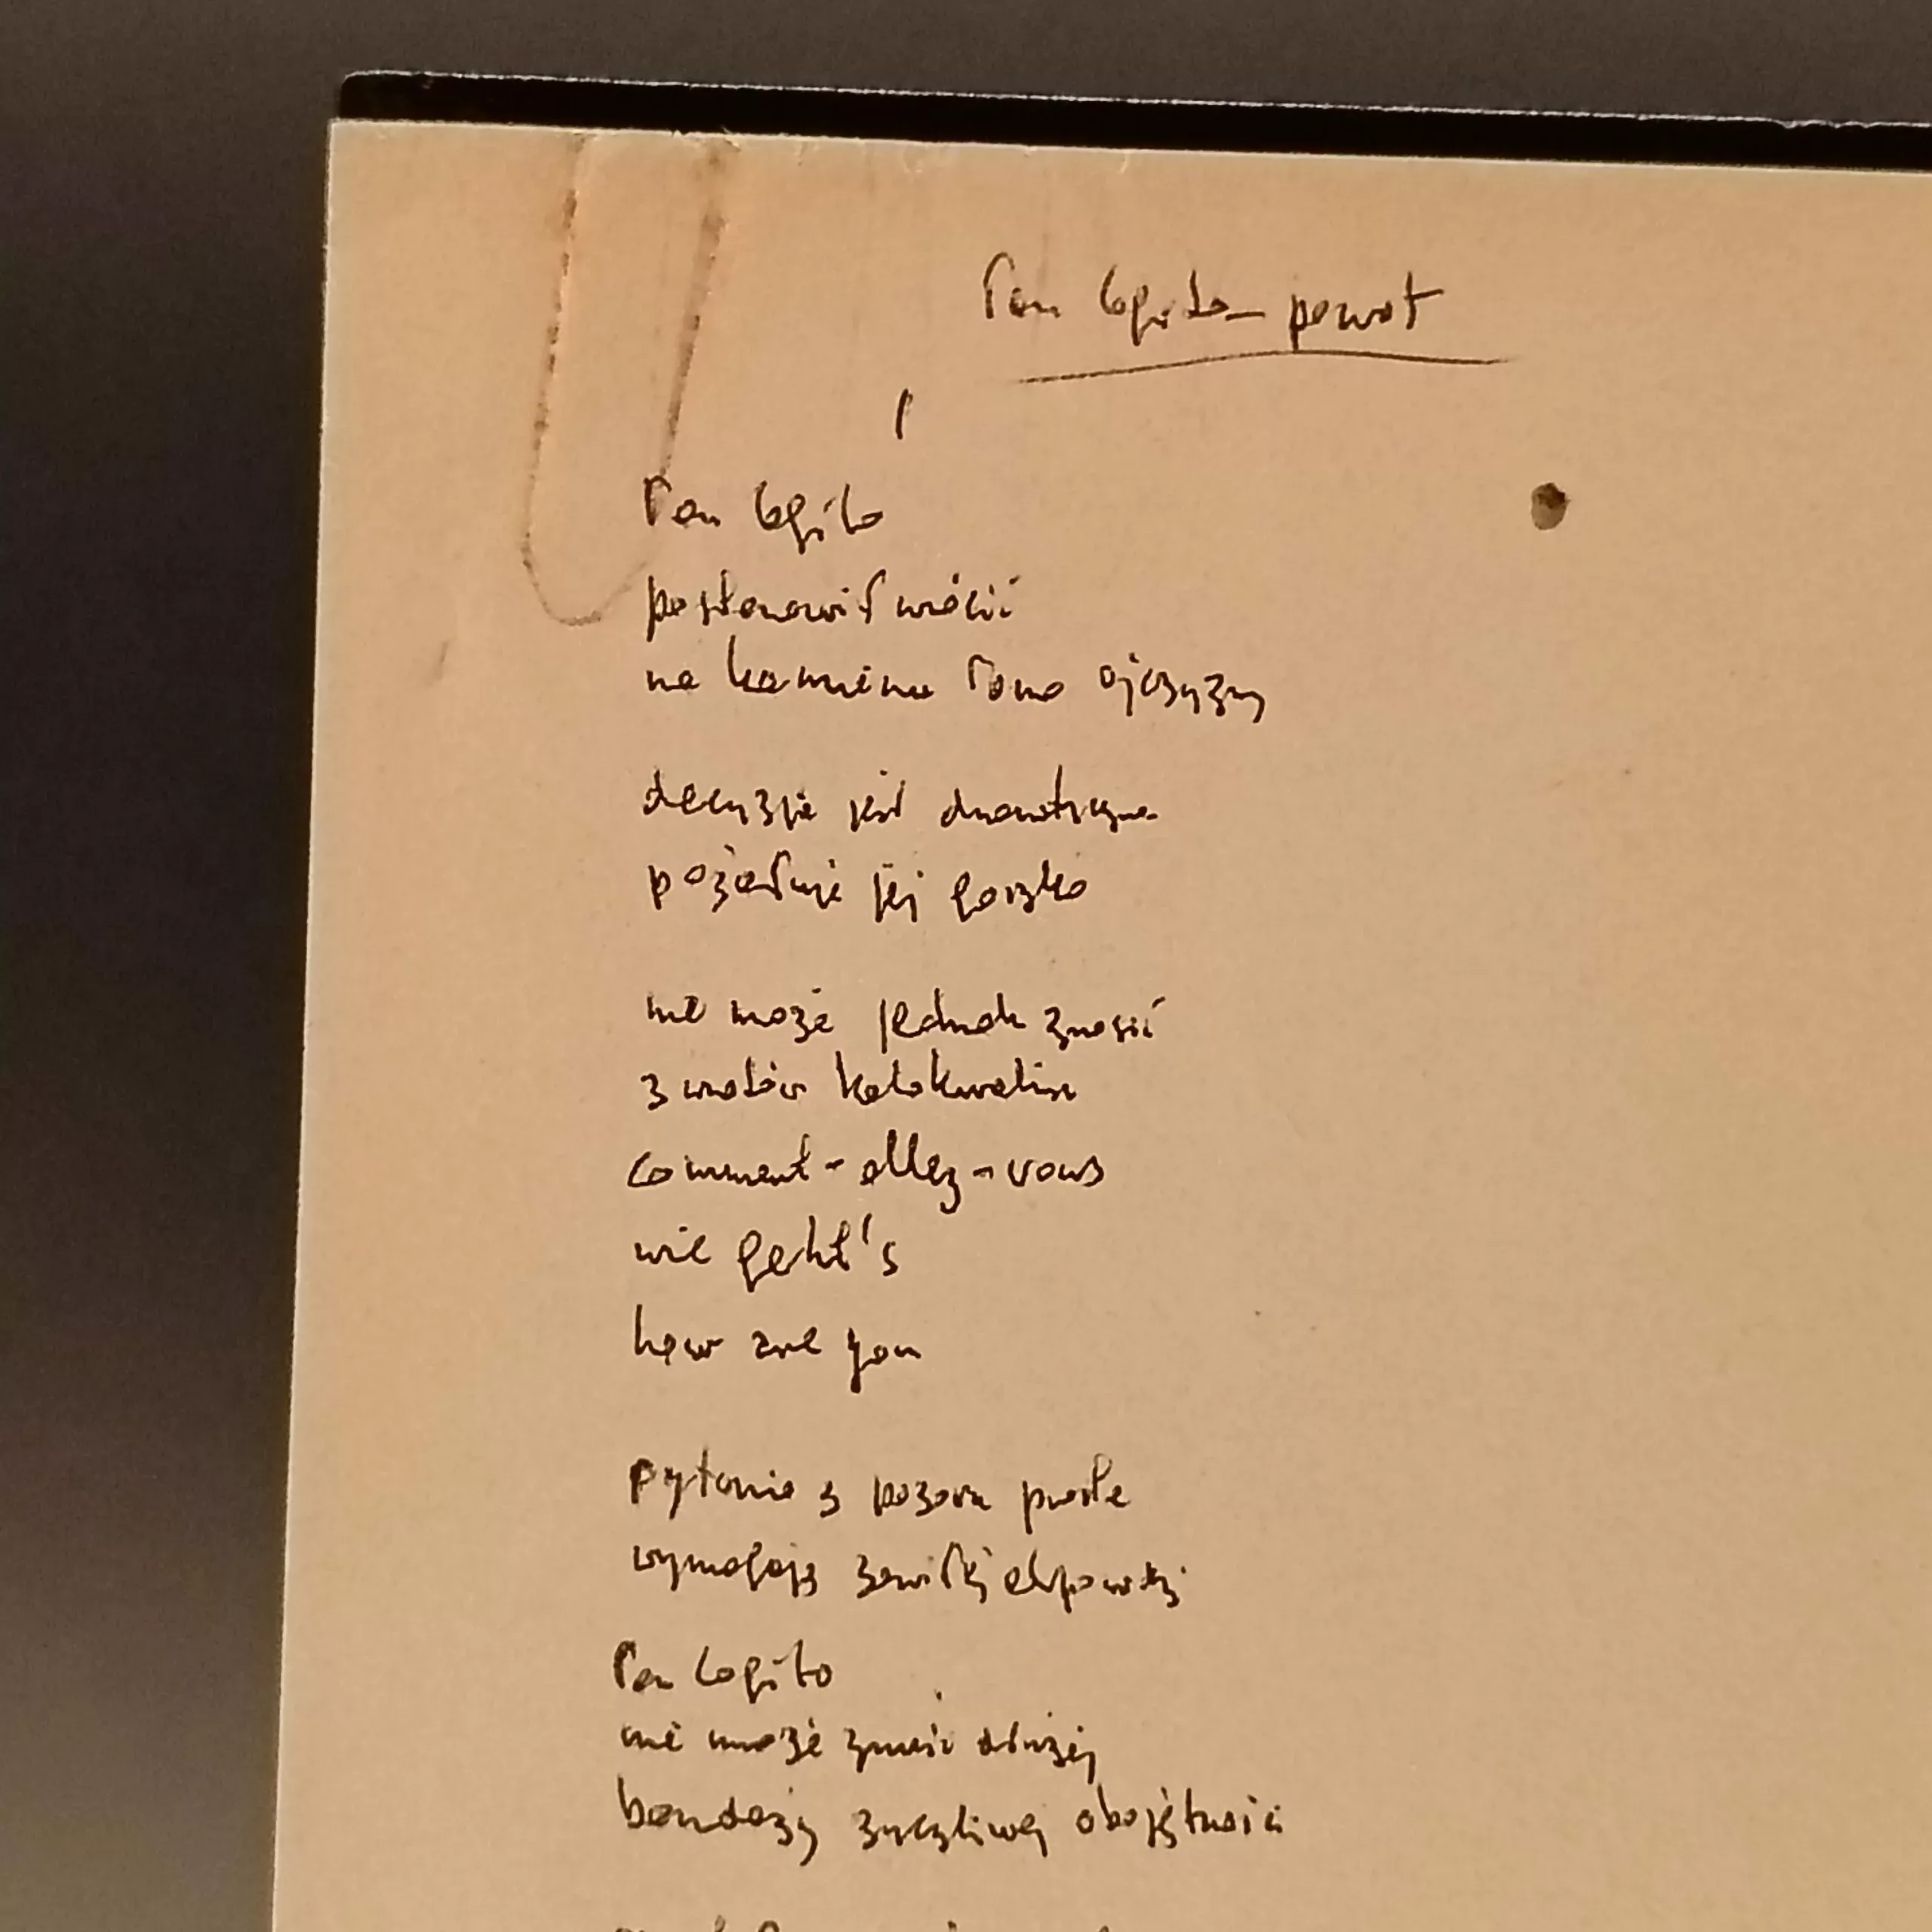 Pan Cogito – powrót
1
Pan Cogito
postanowił wrócić
na kamienne łono ojczyzny
decyzja jest dramatyczna
pożałuje jej gorzko
nie może jednak znosić
zwrotów kolokwialnych
comment-allez-vous
wie geht's
how are you
pytania z pozoru proste
wymagają zawiłej odpowiedzi
Pan Cogito
nie może znieść dłużej
bandaży życzliwej obojętności